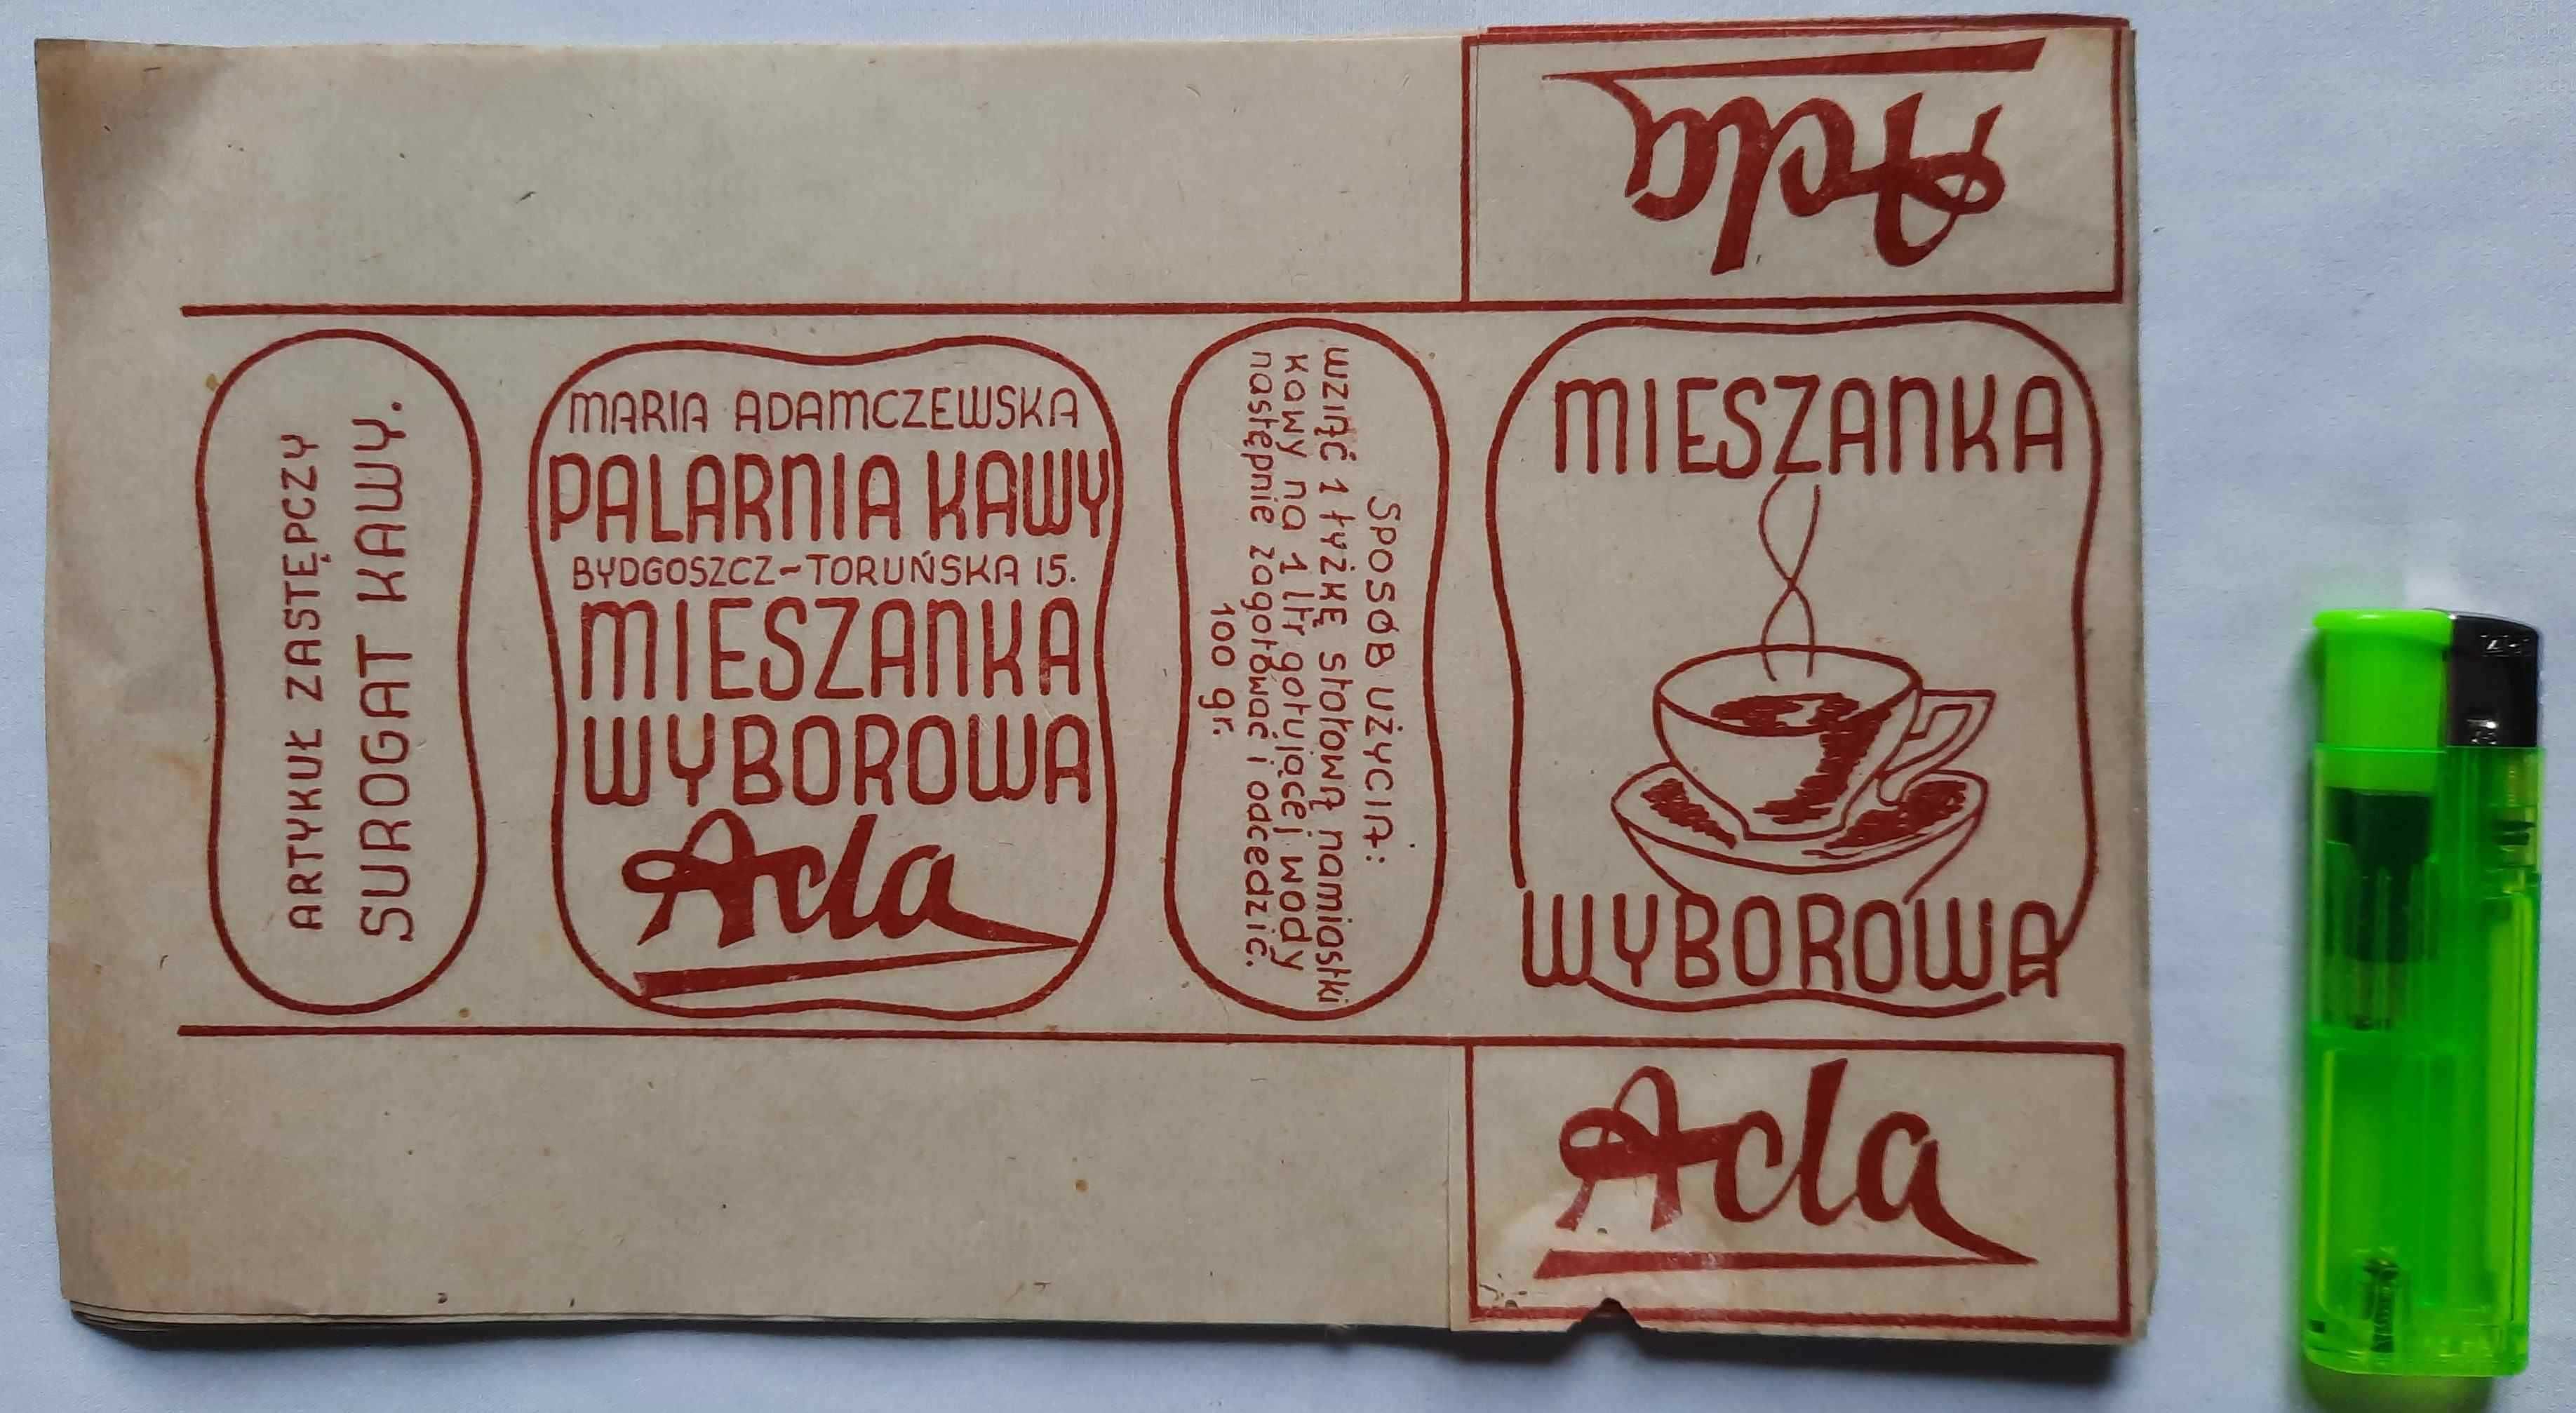 Ada
ARTYKUŁ ZASTĘPCZY
SUROGAT KAWY.
MARIA ADAMCZEWSKA
PALARNIA KAWY
BYDGOSZCZ-TORUŃSKA 15.
MIESZANKA
WYBOROWA
Ada
SPOSÓB UŻYCIA:
WZIĄĆ 1 ŁYŻKĘ stołową namiastki
kawy na 1 ltr gotującej wody
następnie zagotować i odcedzić.
100 gr.
MIESZANKA
WYBOROWA
Ada